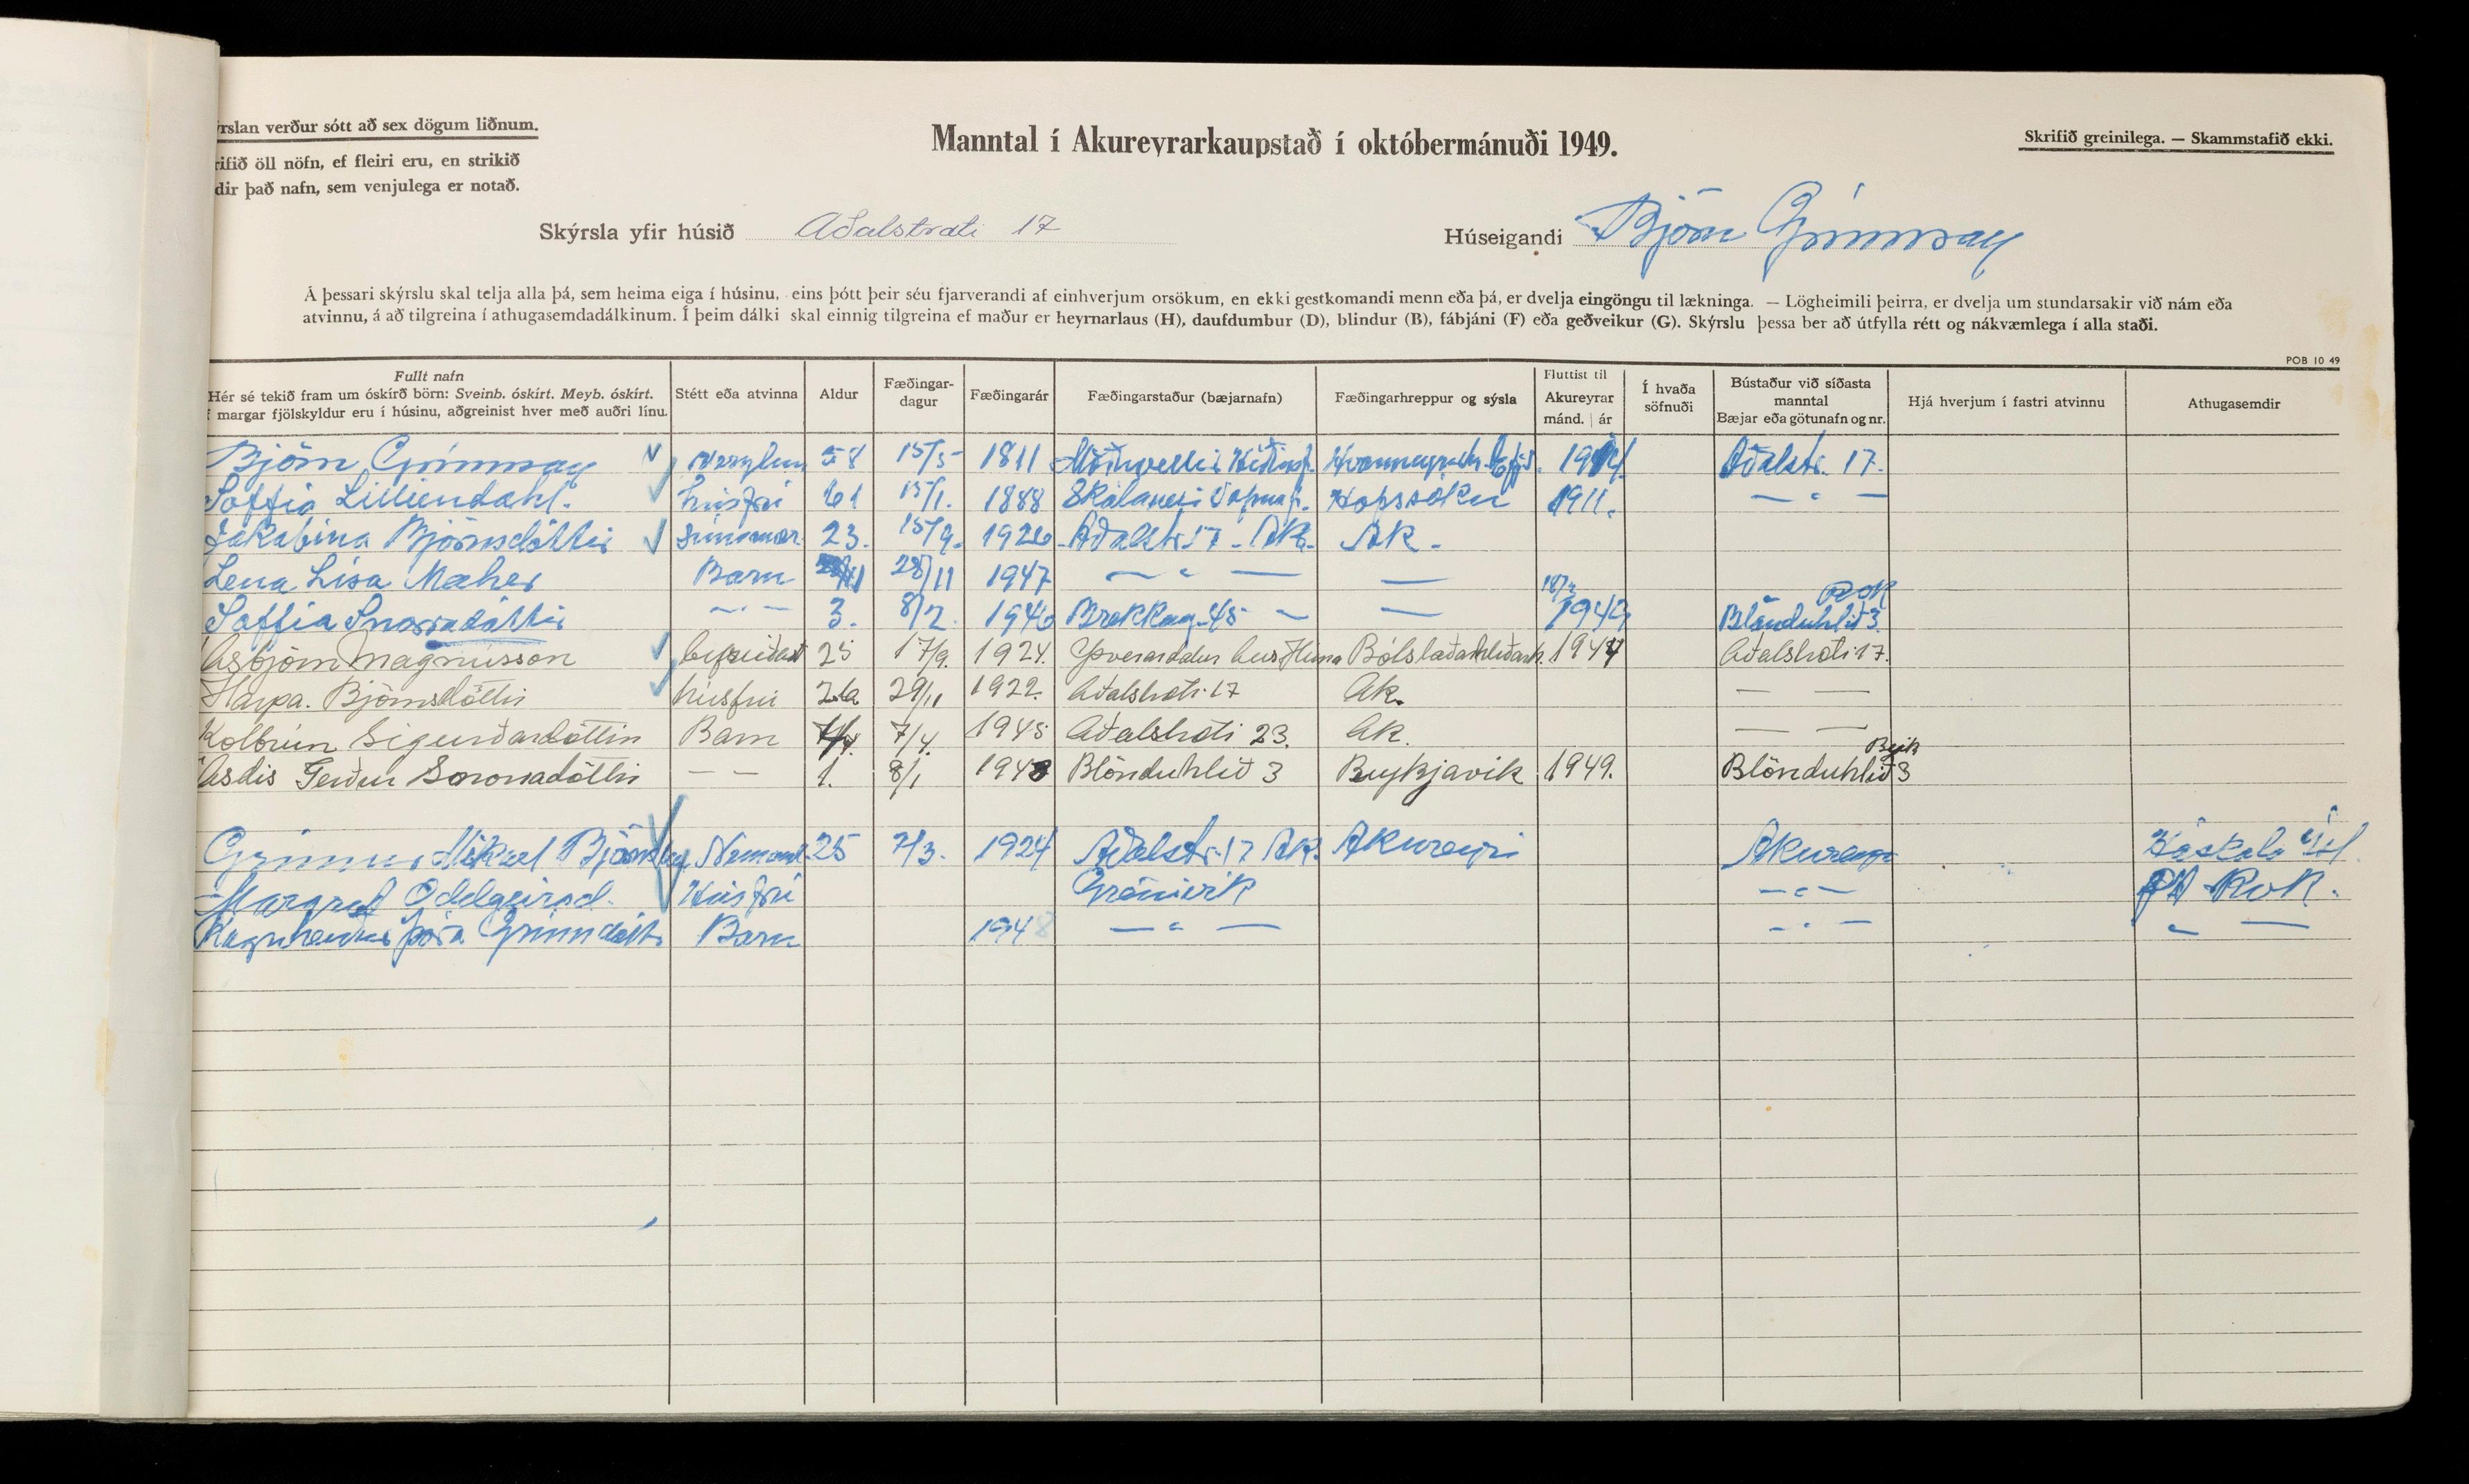 rslan verður sótt að sex dögum liðnum.
rifið öll nöfn, ef fleiri eru, en strikið
dir það nafn, sem venjulega er notað.
Manntal í Akureyrarkaupstað í októbermánuði 1949.
Skrifið greinilega. — Skammstafið ekki.
Skýrsla yfir húsið Aðalstræti 17
Húseigandi Björn Grímsson
Á þessari skýrslu skal telja alla þá, sem heima eiga í húsinu, eins þótt þeir séu fjarverandi af einhverjum orsökum, en ekki gestkomandi menn eða þá, er dvelja eingöngu til lækninga. — Lögheimili þeirra, er dvelja um stundarsakir við nám eða
atvinnu, á að tilgreina í athugasemdadálkinum. Í þeim dálki skal einnig tilgreina ef maður er heyrnarlaus (H), daufdumbur (D), blindur (B), fábjáni (F) eða geðveikur (G). Skýrslu þessa ber að útfylla rétt og nákvæmlega í alla staði.
POB 10 49
Fullt nafn
Hér sé tekið fram um óskírð börn: Sveinb. óskírt. Meyb. óskírt.
margar fjölskyldur eru í húsinu, aðgreinist hver með auðri línu.
Stétt eða atvinna
Aldur
Fæðingar-
dagur
Fæðingarár
Fæðingarstaður (bæjarnafn)
Fæðingarhreppur og sýsla
Fluttist til
Akureyrar
mánd. | ár
Í hvaða
söfnuði
Bústaður við síðasta
manntal
Bæjar eða götunafn og nr.
Hjá hverjum í fastri atvinnu
Athugasemdir
Björn Grímsson 58 15/5 Aðalstr. 17.
Soffía Lilliendahl. húsfrú 61 15/1. 1888 Skálanesi Vopnaf. Hofssókn 1911. — " —
Jakobína Björnsdóttir 23. 15/9. 1926 Aðalstr. 17 - Ak. Ak.
Lena Lísa Mæher Barn 28/11 1947 — " — —
Soffía Snorradóttir — " — 3. 8/2 1946 Brekkug. 45 — — Blönduhlíð 3
Ásbjörn Magnússon 25 17/9. 1924. Aðalstræti 17.
Harpa. Björnsdóttir húsfrú 26 29/11 1922. Aðalstræti 17 Ak. — —
Kolbrún Sigurðardóttir Barn 7/4. 1945 Aðalstræti 23. Ak. — —
Ásdís Gerður Snorradóttir — — 1. 8/1 1948 Blönduhlíð 3 Reykjavík 1949. Blönduhlíð 3
Grímur Mikael Björnsson 25 7/3. 1924 Aðalstr. 17 Ak. Akureyri Akureyri Háskóla Ísl
Margrét Oddgeirsd. Húsfrú Grenivík — " — Rvk.
Ragnheiður Þóra Grímsdótt Barn 1948 — " — — " — " —